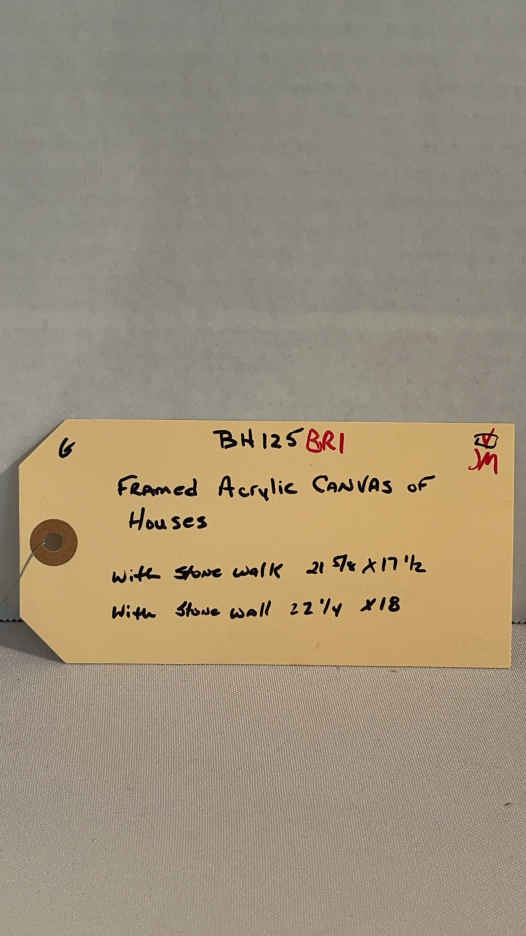 G BH125 BR1
JM
FRAMED Acrylic CANVAS OF
Houses
With Stone walk 21 5/8 X 17 1/2
With Stone wall 22 1/4 X 18